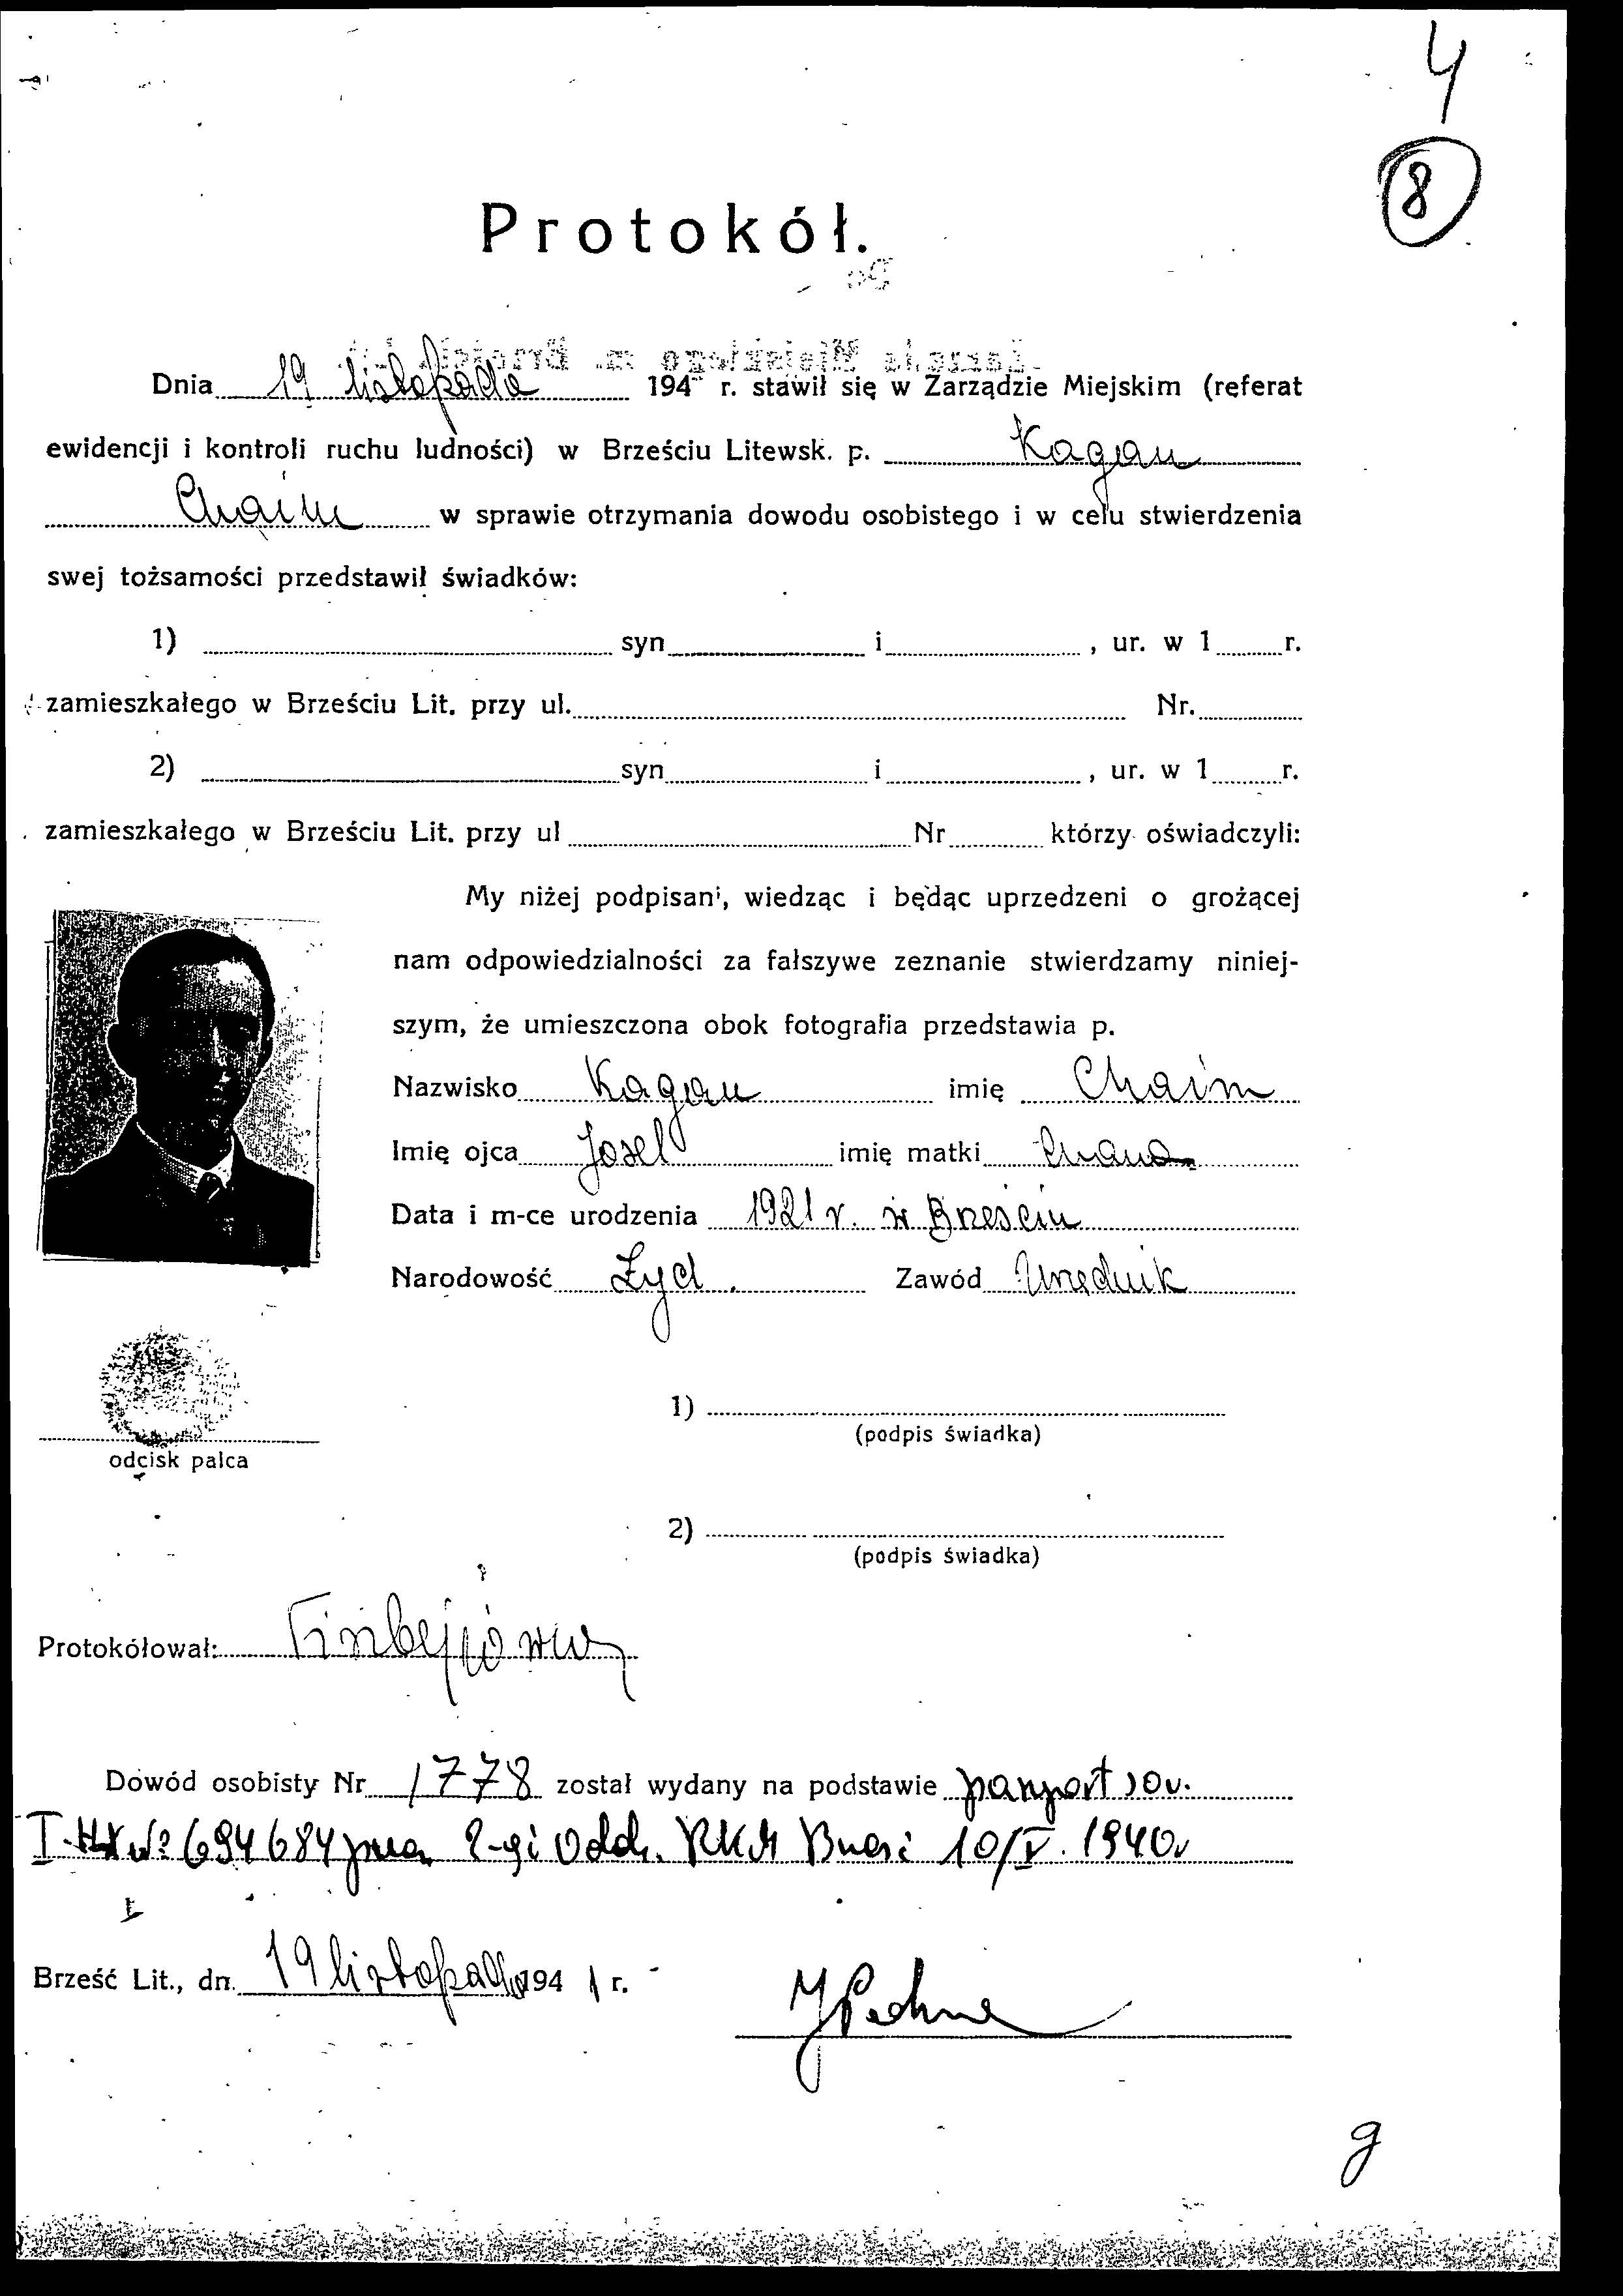 4
8
Protokół.
Dnia 19 listopada 194 r. stawił się w Zarządzie Miejskim (referat
ewidencji i kontroli ruchu ludności) w Brześciu Litewsk. p. Kagan
Chaim w sprawie otrzymania dowodu osobistego i w celu stwierdzenia
swej tożsamości przedstawił świadków:
1) syn i , ur. w 1 r.
zamieszkałego w Brześciu Lit. przy ul. Nr.
2) syn i , ur. w 1 r.
zamieszkałego w Brześciu Lit. przy ul Nr którzy oświadczyli:
My niżej podpisani, wiedząc i będąc uprzedzeni o grożącej
nam odpowiedzialności za fałszywe zeznanie stwierdzamy niniej-
szym, że umieszczona obok fotografia przedstawia p.
Nazwisko Kagan imię Chaim
Imię ojca Josel imię matki Chana
Data i m-ce urodzenia 1921 r. w Brześciu
Narodowość Żyd. Zawód Urzędnik
1)
(podpis świadka)
odcisk palca
2)
(podpis świadka)
Protokółował:
Dowód osobisty Nr 1778 został wydany na podstawie paszport sov.
694684 przez 2-gi Odd. RKM Brześć 10/V. 1940r
Brześć Lit., dn. 19 listopada 194 1 r.
g